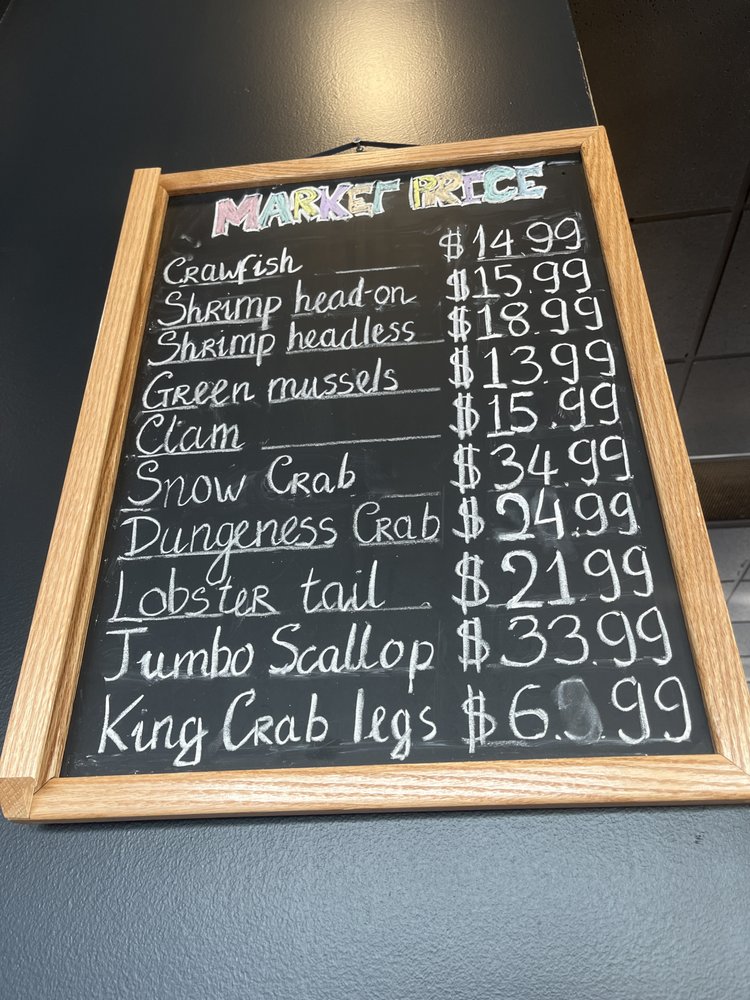 MARKET PRICE
Crawfish $14.99
Shrimp head-on $15.99
Shrimp headless $18.99
Green mussels $13.99
Clam $15.99
Snow Crab $34.99
Dungeness Crab $24.99
Lobster tail $21.99
Jumbo Scallop $33.99
King Crab legs